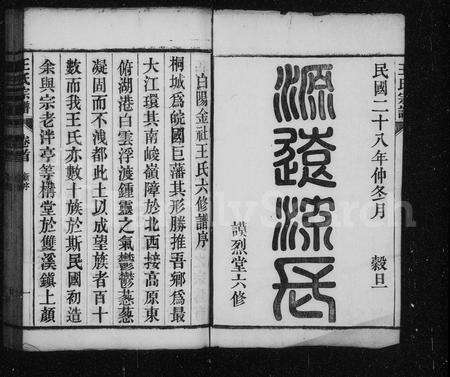 民國二十八年仲冬月 穀旦
源遠流長
謨烈堂六修
白陽金社王氏六修譜序
桐城爲皖國巨藩其形勝推吾鄉爲最
大江環其南峻嶺障於北西接高原東
俯湖港白雲浮渡鍾靈之氣鬱鬱葱葱
凝固而不洩都此土以成望族者百十
數而我王氏亦數十族於斯民國初造
余與宗老泮亭等構堂於雙溪鎮上顏
王氏宗譜
卷首
FamilySearch